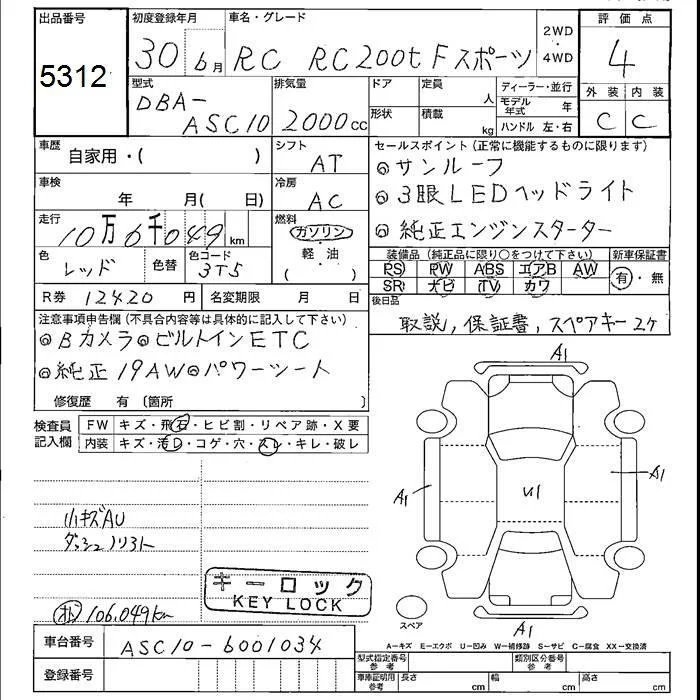 出品番号
5312
初度登録年月
30 6月
車名・グレード
RC RC200t Fスポーツ
2WD
・
4WD
評価点
4
外装 内装
C C
型式
DBA-
ASC10
排気量
2000cc
ドア
定員
人
形状
積載
kg
ディーラー・並行
モデル年式 年
ハンドル 左・右
車歴
自家用・( )
シフト
AT
セールスポイント(正常に機能するものに限ります)
◎サンルーフ
◎3眼LEDヘッドライト
◎純正エンジンスターター
車検
年 月( 日)
冷房
AC
走行
10万6千049km
燃料
ガソリン
・
軽・油
( )
色
レッド
色替
色コード
3T5
装備品(純正品に限り○をつけて下さい)
PS PW ABS エアB AW
SR ナビ TV カワ
新車保証書
有・無
R券 12420円
名変期限 月 日
後日品
取説,保証書,スペアキー2ヶ
注意事項申告欄(不具合内容等は具体的に記入して下さい)
◎Bカメラ◎ビルトインETC
◎純正19AW◎パワーシート
修復歴 有〔箇所 〕
検査員
記入欄
FW キズ・飛石・ヒビ割・リペア跡・X要
内装 キズ・汚れ・コゲ・穴・スレ・キレ・破レ
小キズAU
ダッシュノリスト
キーロック
KEY LOCK
106.049km
A1
A1
U1
A1
A1
スペア
車台番号
ASC10-6001034
登録番号
A-キズ E-エクボ U-凹み W-補修跡 S-サビ C-腐食 XX-交換済
型式指定番号
参考
類別区分番号
参考
車庫証明用
参考
長さ cm
幅 cm
高さ cm